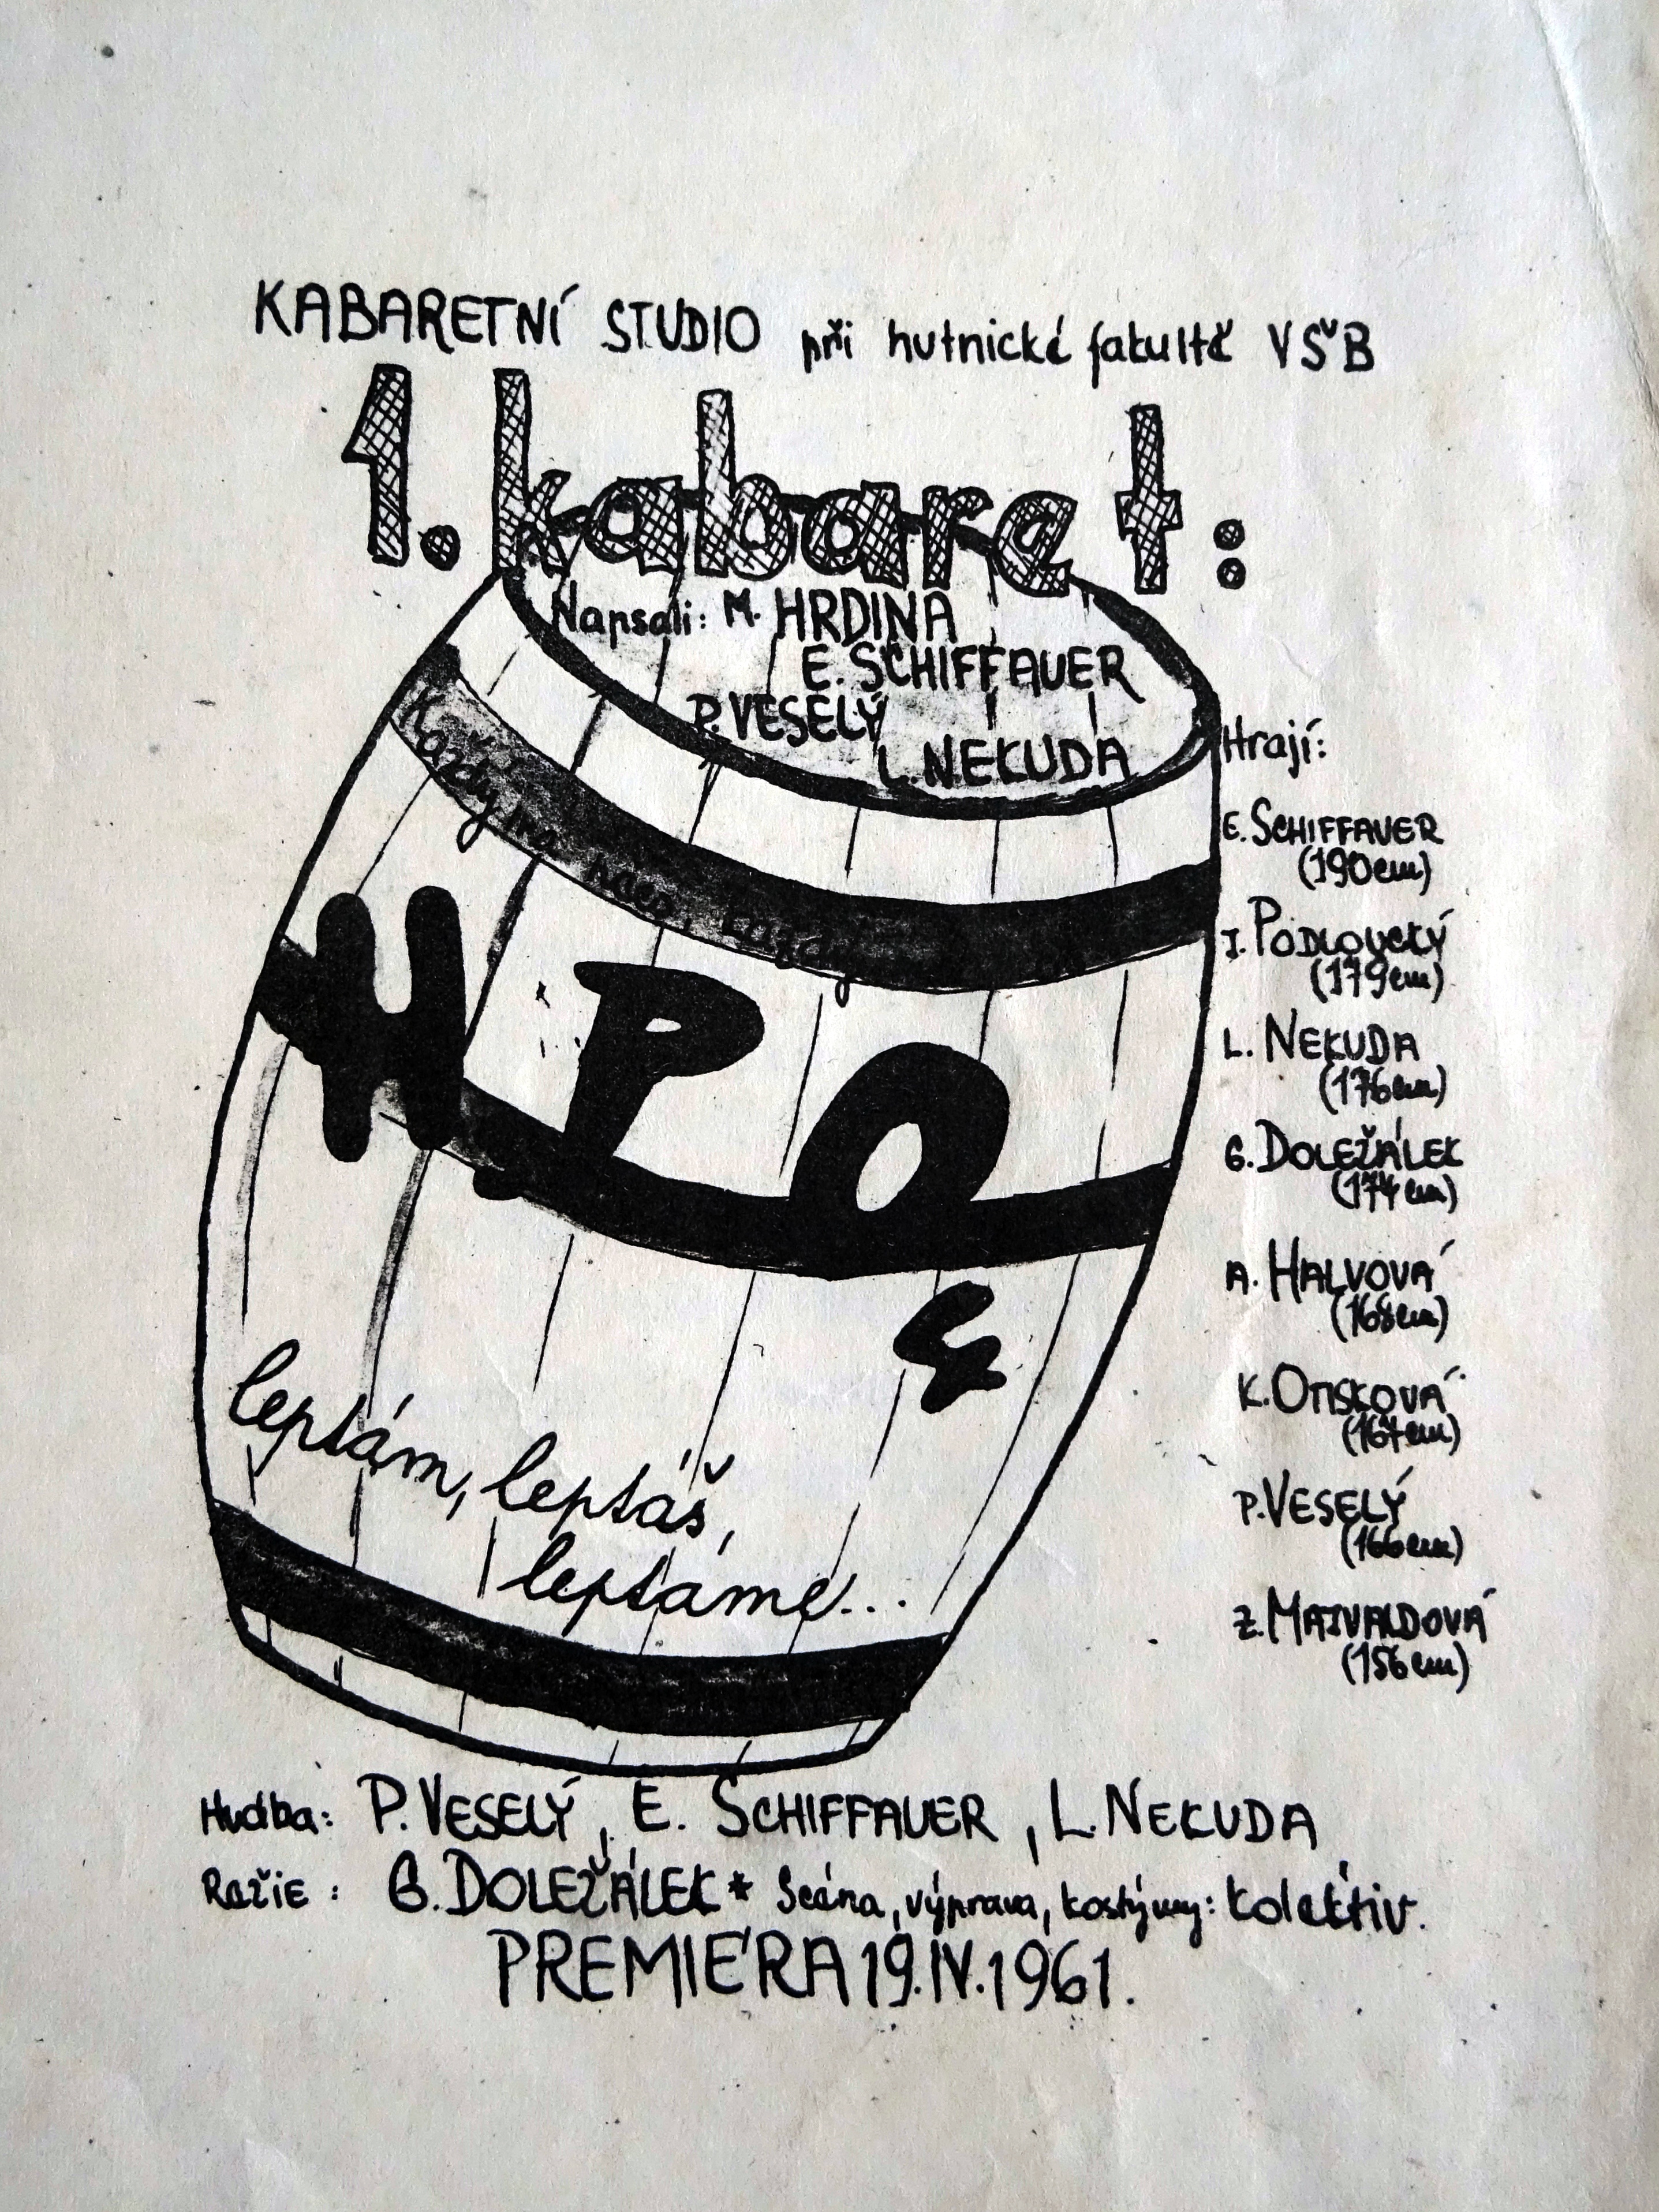 KABARETNÍ STUDIO při hutnické fakultě VŠB
1. kabaret:
Napsali: M. HRDINA
E. SCHIFFAUER
P. VESELÝ
L. NEKUDA
Každý má
každý
H P O
4
leptám, leptáš,
leptáme...
Hrají:
E. SCHIFFAUER
(190cm)
I. PODLOUCKÝ
(179cm)
L. NEKUDA
(176cm)
G. DOLEŽÁLEK
(174cm)
A. HALVOVÁ
(168cm)
K. OTISKOVÁ
(167cm)
P. VESELÝ
(166cm)
Z. MAIVALDOVÁ
(156cm)
Hudba: P. VESELÝ, E. SCHIFFAUER, L. NEKUDA
Režie: G. DOLEŽÁLEK * Scéna, výprava, kostýmy: kolektiv.
PREMIÉRA 19.IV.1961.